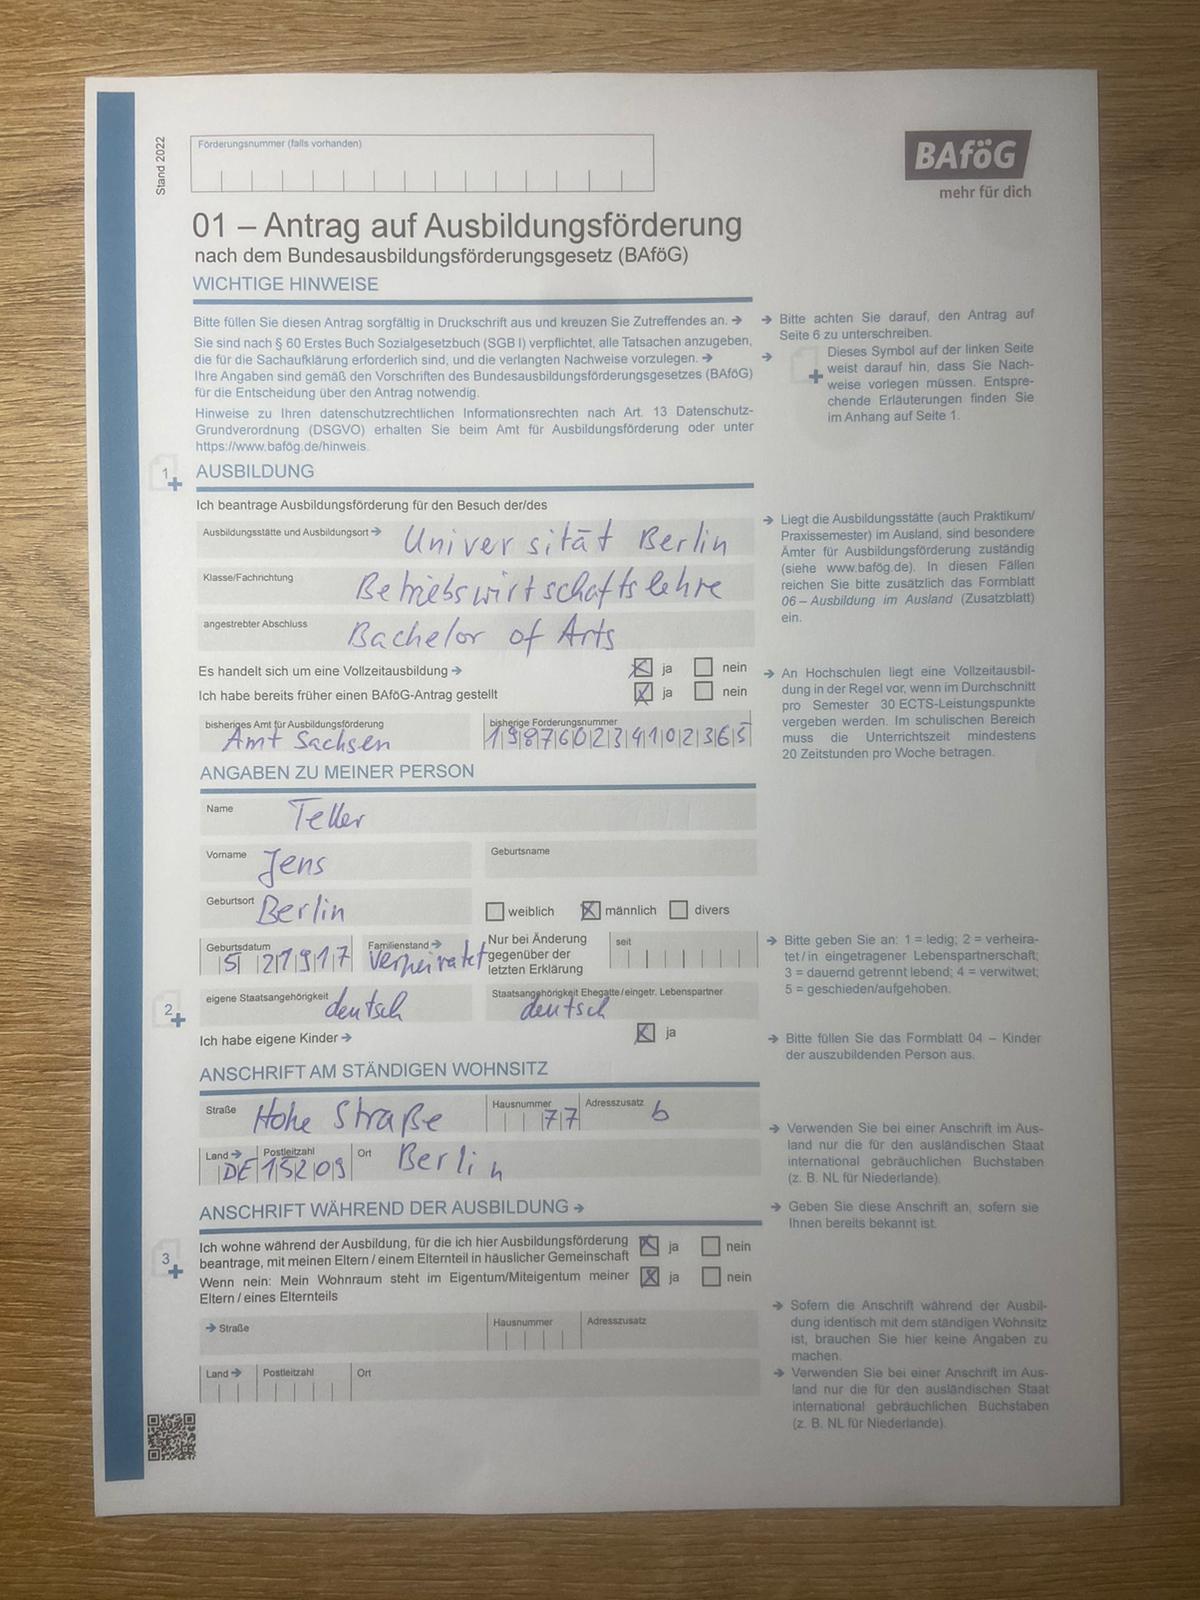 Stand 2022
Förderungsnummer (falls vorhanden)
BAföG
mehr für dich
01 – Antrag auf Ausbildungsförderung
nach dem Bundesausbildungsförderungsgesetz (BAföG)
WICHTIGE HINWEISE
Bitte füllen Sie diesen Antrag sorgfältig in Druckschrift aus und kreuzen Sie Zutreffendes an. →
Sie sind nach § 60 Erstes Buch Sozialgesetzbuch (SGB I) verpflichtet, alle Tatsachen anzugeben,
die für die Sachaufklärung erforderlich sind, und die verlangten Nachweise vorzulegen. →
Ihre Angaben sind gemäß den Vorschriften des Bundesausbildungsförderungsgesetzes (BAföG)
für die Entscheidung über den Antrag notwendig.
Hinweise zu Ihren datenschutzrechtlichen Informationsrechten nach Art. 13 Datenschutz-
Grundverordnung (DSGVO) erhalten Sie beim Amt für Ausbildungsförderung oder unter
https://www.bafög.de/hinweis.
→ Bitte achten Sie darauf, den Antrag auf
Seite 6 zu unterschreiben.
→ Dieses Symbol auf der linken Seite
weist darauf hin, dass Sie Nach-
weise vorlegen müssen. Entspre-
chende Erläuterungen finden Sie
im Anhang auf Seite 1.
1 AUSBILDUNG
Ich beantrage Ausbildungsförderung für den Besuch der/des
Ausbildungsstätte und Ausbildungsort → Universität Berlin
Klasse/Fachrichtung Betriebswirtschaftslehre
angestrebter Abschluss Bachelor of Arts
→ Liegt die Ausbildungsstätte (auch Praktikum/
Praxissemester) im Ausland, sind besondere
Ämter für Ausbildungsförderung zuständig
(siehe www.bafög.de). In diesen Fällen
reichen Sie bitte zusätzlich das Formblatt
06 – Ausbildung im Ausland (Zusatzblatt)
ein.
Es handelt sich um eine Vollzeitausbildung → ja nein
Ich habe bereits früher einen BAföG-Antrag gestellt ja nein
→ An Hochschulen liegt eine Vollzeitausbil-
dung in der Regel vor, wenn im Durchschnitt
pro Semester 30 ECTS-Leistungspunkte
vergeben werden. Im schulischen Bereich
muss die Unterrichtszeit mindestens
20 Zeitstunden pro Woche betragen.
bisheriges Amt für Ausbildungsförderung bisherige Förderungsnummer
Amt Sachsen 198760234102365
ANGABEN ZU MEINER PERSON
Name Teller
Vorname Jens Geburtsname
Geburtsort Berlin weiblich männlich divers
Geburtsdatum Familienstand → Nur bei Änderung seit
5 21917 verheiratet gegenüber der
letzten Erklärung
→ Bitte geben Sie an: 1 = ledig; 2 = verheira-
tet/in eingetragener Lebenspartnerschaft;
3 = dauernd getrennt lebend; 4 = verwitwet;
5 = geschieden/aufgehoben.
2 eigene Staatsangehörigkeit deutsch Staatsangehörigkeit Ehegatte/eingetr. Lebenspartner
deutsch
Ich habe eigene Kinder → ja
→ Bitte füllen Sie das Formblatt 04 – Kinder
der auszubildenden Person aus.
ANSCHRIFT AM STÄNDIGEN WOHNSITZ
Straße Hohe Straße Hausnummer 77 Adresszusatz b
Land → DE Postleitzahl 15209 Ort Berlin
→ Verwenden Sie bei einer Anschrift im Aus-
land nur die für den ausländischen Staat
international gebräuchlichen Buchstaben
(z. B. NL für Niederlande).
ANSCHRIFT WÄHREND DER AUSBILDUNG →
→ Geben Sie diese Anschrift an, sofern sie
Ihnen bereits bekannt ist.
3 Ich wohne während der Ausbildung, für die ich hier Ausbildungsförderung
beantrage, mit meinen Eltern / einem Elternteil in häuslicher Gemeinschaft ja nein
Wenn nein: Mein Wohnraum steht im Eigentum/Miteigentum meiner
Eltern / eines Elternteils ja nein
→ Straße Hausnummer Adresszusatz
Land → Postleitzahl Ort
→ Sofern die Anschrift während der Ausbil-
dung identisch mit dem ständigen Wohnsitz
ist, brauchen Sie hier keine Angaben zu
machen.
→ Verwenden Sie bei einer Anschrift im Aus-
land nur die für den ausländischen Staat
international gebräuchlichen Buchstaben
(z. B. NL für Niederlande).